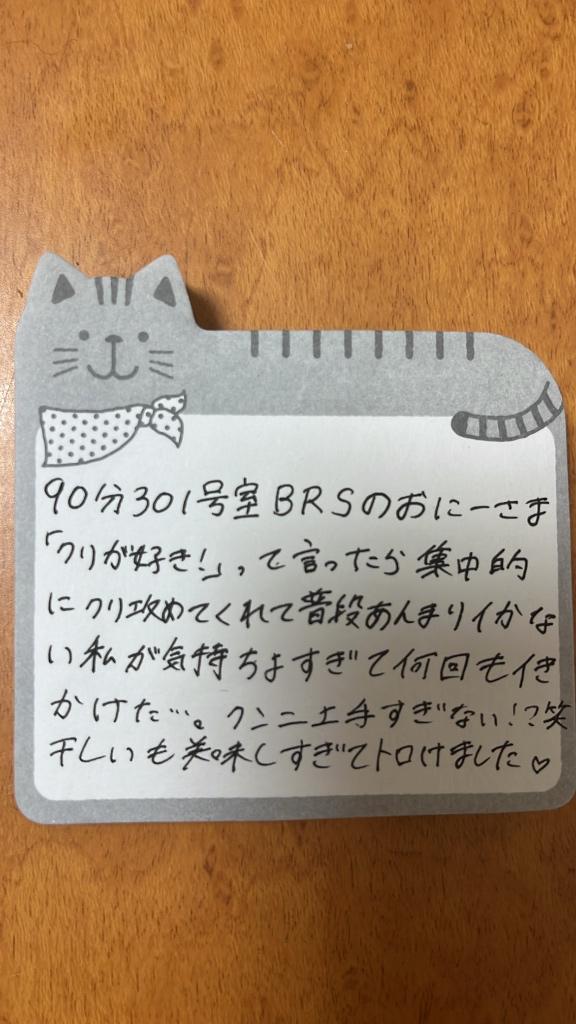 90分301号室BRSのおにーさま
「クリが好き!」って言ったら集中的
にクリ攻めてくれて普段あんまりイかな
い私が気持ちよすぎて何回もイき
かけた…。クンニ上手すぎない!?笑
干しいも美味しすぎてトロけました♡